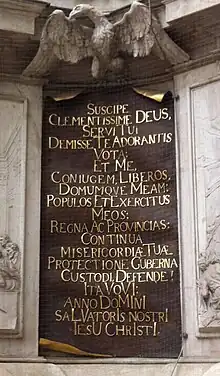 SUSCIPE
CLEMENTISSIME DEUS,
SERVI TUI
DEMISSE TE ADORANTIS
VOTA:
ET ME,
CONIUGEM, LIBEROS,
DOMUMQUE MEAM:
POPULOS ET EXERCITUS
MEOS:
REGNA AC PROVINCIAS:
CONTINUA
MISERICORDIÆ TUÆ
PROTECTIONE GUBERNA
CUSTODI, DEFENDE!
ITA VOVI:
ANNO DOMINI
SALVATORIS NOSTRI
IESU CHRISTI.